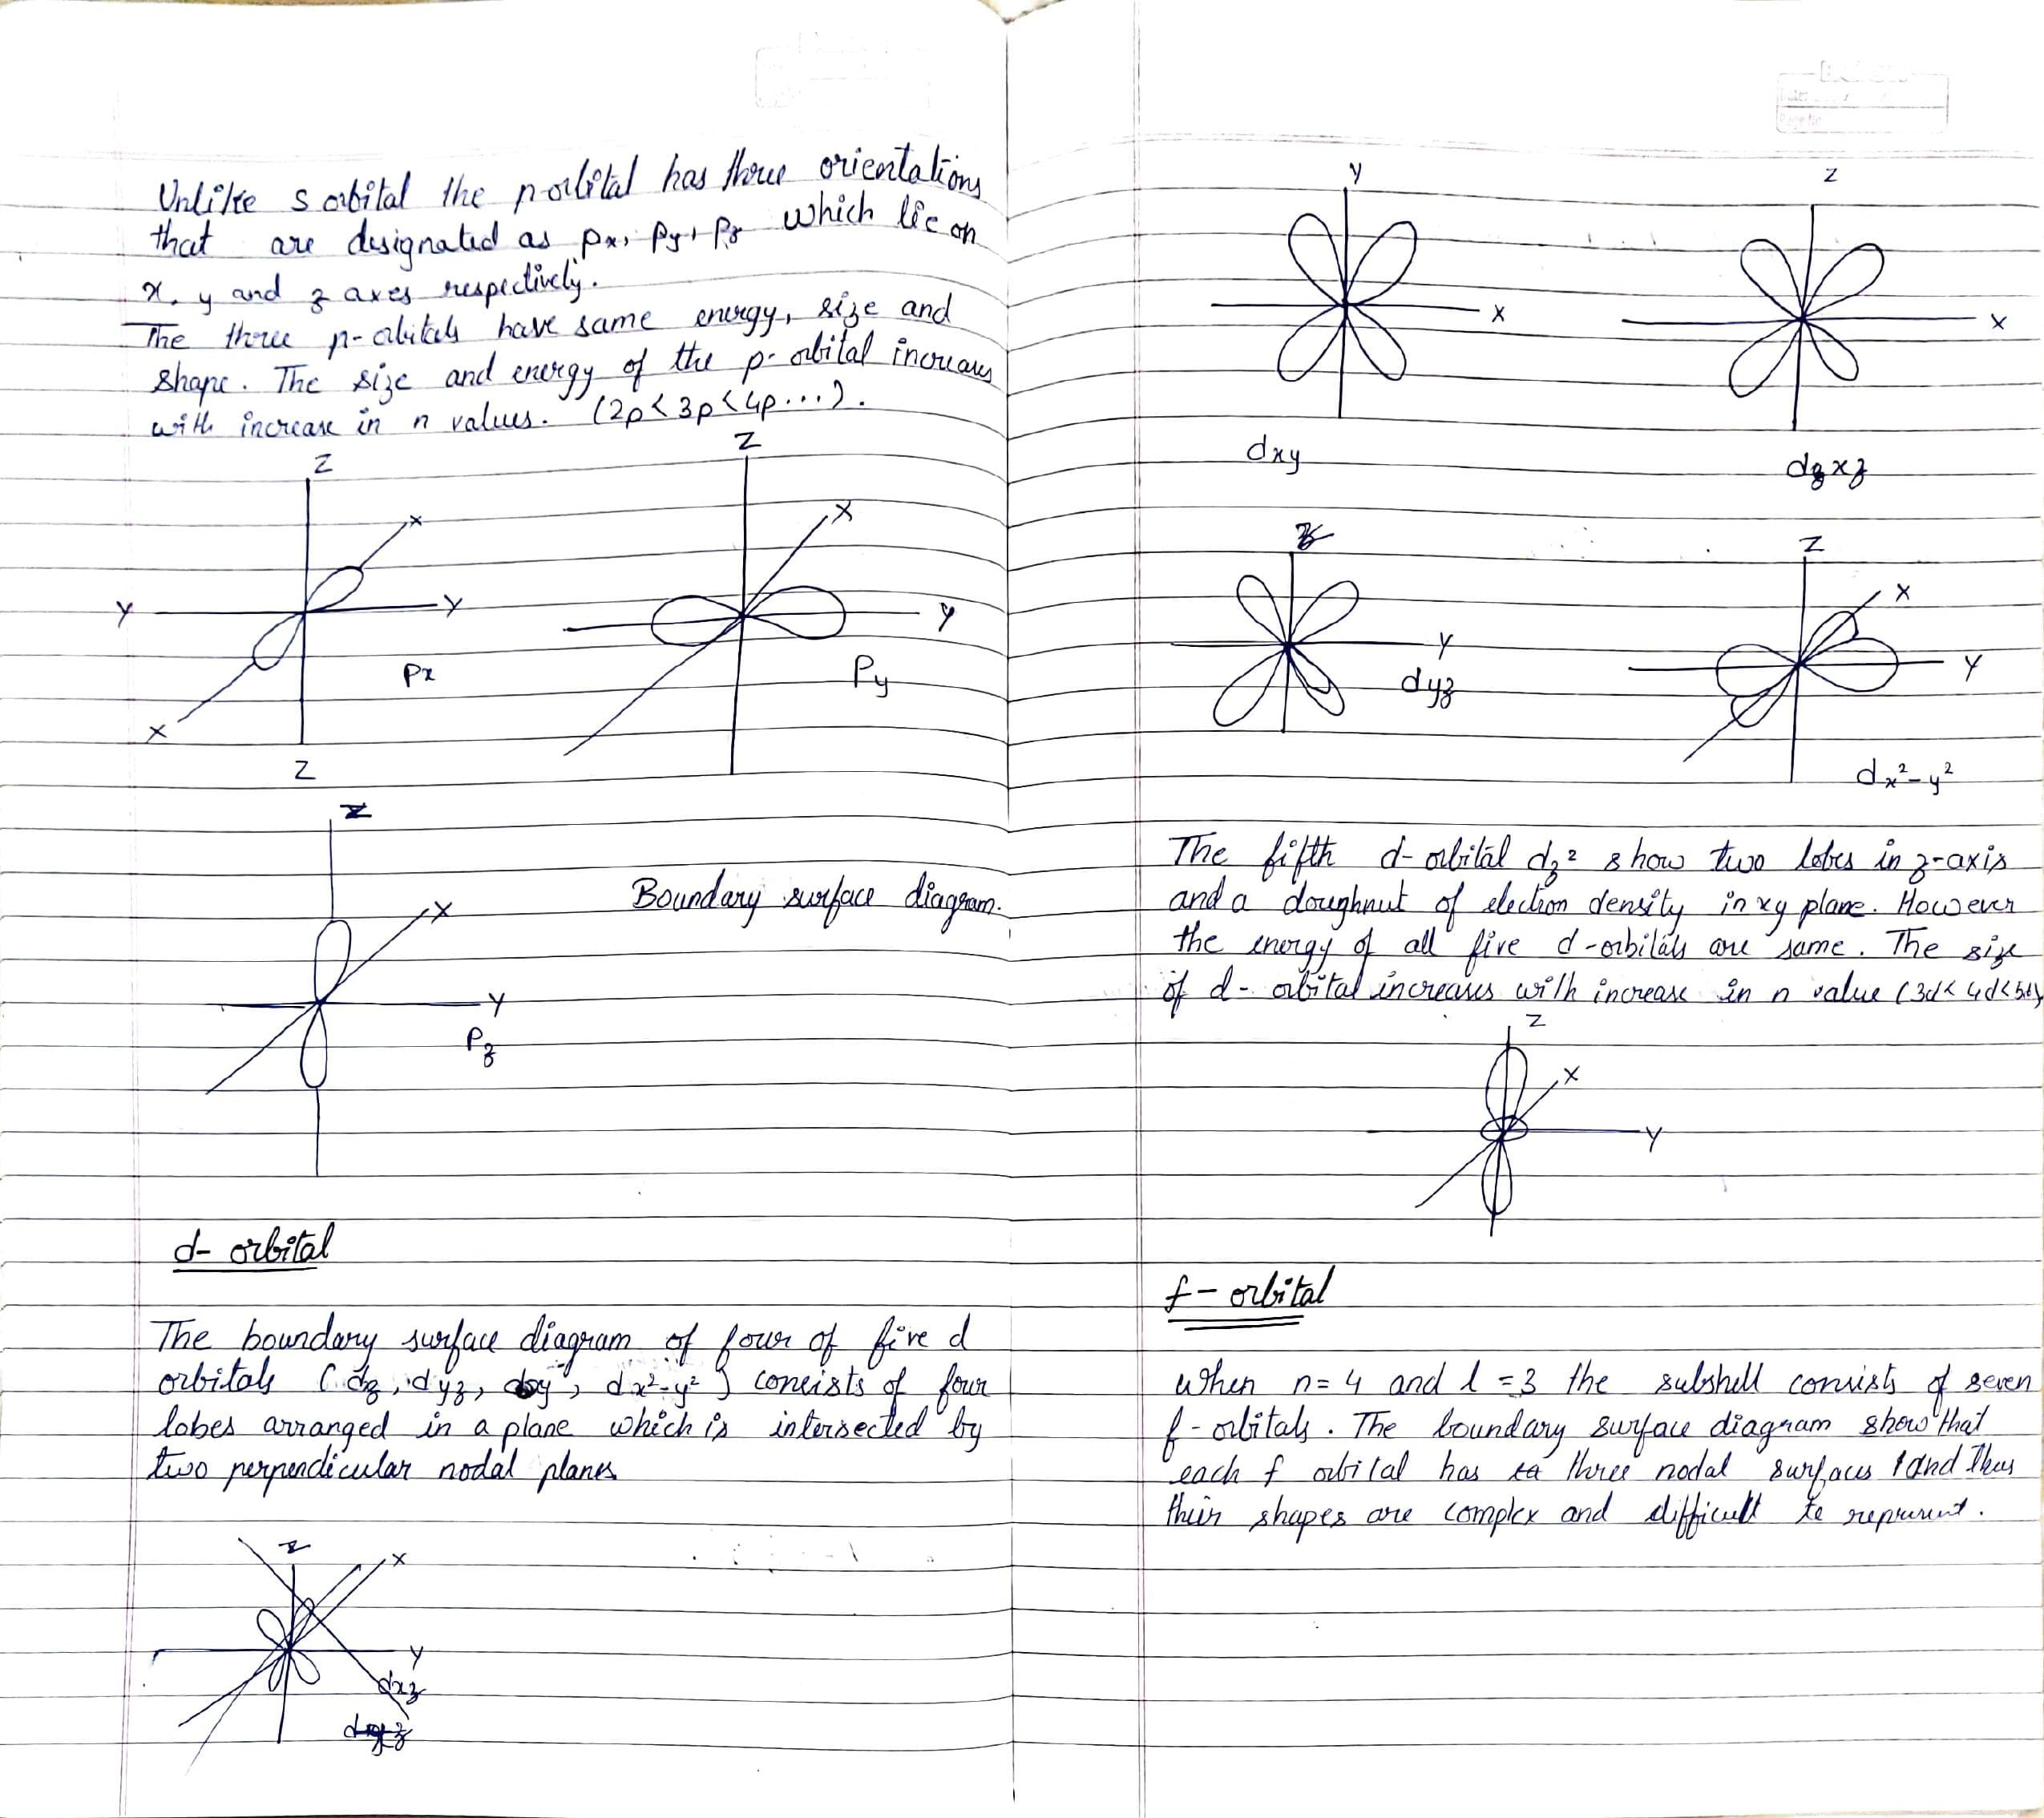 Unlike s orbital the p orbital has three orientations
that are designated as px, py, pz which lie on
x, y and z axes respectively.
The three p-orbitals have same energy, size and
shape. The size and energy of the p-orbital increases
with increase in n values. (2p<3p<4p...).
Z
X
Y
Y
Px
X
Z
Z
X
Y
Py
Z
X
Y
Pz
Boundary surface diagram.
d- orbital
The boundary surface diagram of four of five d
orbitals ( dyz, dxy, dx²-y² ) consists of four
lobes arranged in a plane which is intersected by
two perpendicular nodal planes
Z
X
Y
dxz
Y
X
dxy
Z
X
dz xz
Z
Y
dyz
Z
X
Y
dx²-y²
The fifth d-orbital dz² show two lobes in z-axis
and a doughnut of election density in xy plane. However
the energy of all five d-orbitals are same. The size
of d- orbital increases with increase in n value (3d<4d<5d)
Z
X
Y
f- orbital
when n=4 and l=3 the subshell consists of seven
f-orbitals. The boundary surface diagram show that
each f orbital has three nodal surfaces and thus
their shapes are complex and difficult to represent.